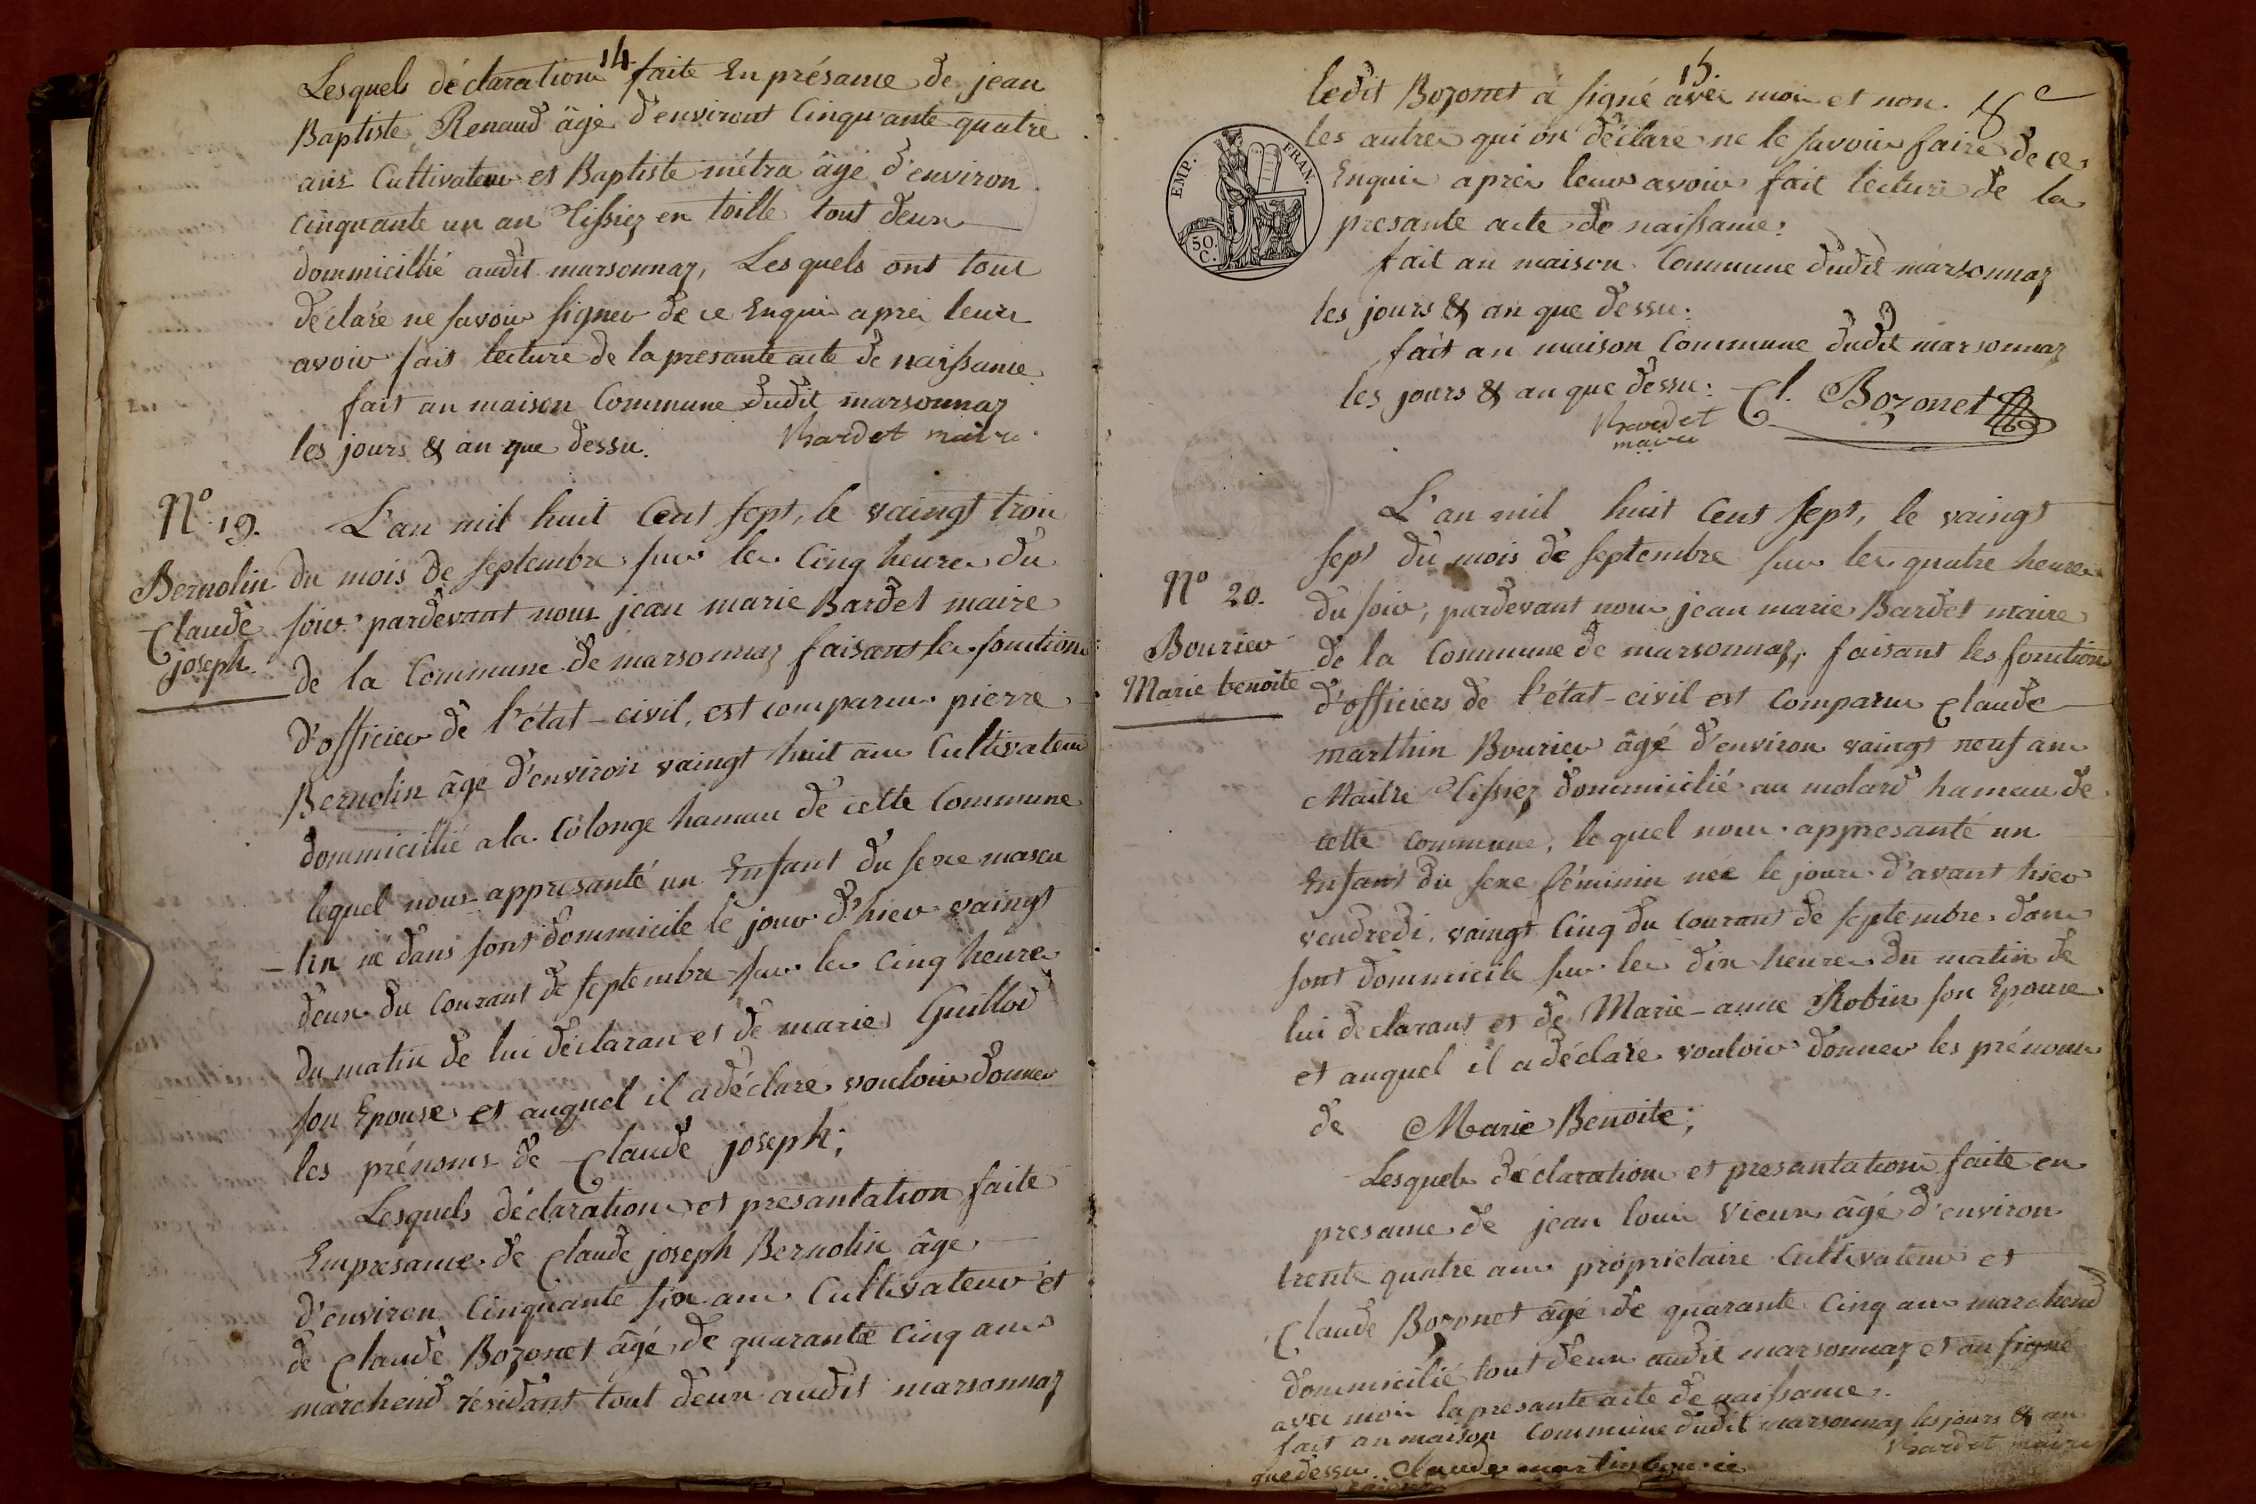 14
Lesquels déclarations faite En présance de jean
Baptiste Renaud âgé d'environt Cinquante quatre
ans Cultivateur et Baptiste métra âgé d'environ
cinquante un an Tissiez en toille tout deux
dommicillié audit marsonnaz, Lesquels ont tout
déclaré ne savoir signer de ce Enquis après leurs
avoir fait lecture de la presante acte de naissance
fait an maison Commune dudit marsonnaz
les jours & an que dessu.
Bardet maire
Nº 19.
Bernolin
Claude
joseph
L'an mil huit Cent sept, le vaingt trois
du mois de septembre sur les Cinq heures du
soir pardevant nous jean marie Bardet maire
de la Commune de marsonnaz faisant les fonctions
d'officier de l'état-civil, est comparus pierre
Bernolin âgé d'environ vaingt huit ans Cultivateur
dommicillié a la Colonge hamau de cette Commune
lequel nous appresanté un Enfant du sexe mascu
-lin né dans sont dommicile le jour d'hier vaingt
deux du Courant de septembre sur les cinq heures
du matin de lui déclaran et de marie Guillod
son Epouse et auquel il a déclaré vouloir donner
les prénoms de Claude joseph;
Lesquels déclarations et presantation faite
Empresance de Claude joseph Bernolin âgé
d'environ Cinquante six ans Cultivateur et
de Claude Bozonet âgé de quarante cinq ans
marchend résidant tout deux audit marsonnaz
15.
ledit Bozonet à signé avec moi et non
8e
les autres qui on déclaré ne le savoir faire de ce
Enquis après leurs avoir fait lecture de la
presante acte de naissance.
EMP. FRAN.
50. C.
fait an maison Commune dudit marsonnaz
les jours & an que dessu.
fait an maison Commune dudit marsonnaz
les jours & an que dessu.
Cl. Bozonet
Bardet
maire
Nº 20.
Bourier
Marie benoite
L'an mil huit Cent sept, le vaingt
sept du mois de septembre sur les quatre heures
du soir, pardevant nous jean marie Bardet maire
de la Commune de marsonnaz, faisant les fonctions
d'officiers de l'état-civil est Comparus Claude
marthin Bourier âgé d'environ vaingt neuf ans
Maitre Tissiez dommicilié au molard hamau de
cette commune, lequel nous appresanté un
Enfant du sexe féminin née le jours d'avant hier
vendredi, vaingt Cinq du Courant de septembre dans
sont dommicile sur les dix heures du matin de
lui declarant et de Marie-anne Robin son Epouse
et auquel il a déclaré vouloir donner les prénoms
de Marie Benoite;
Lesquels déclarations et presantations faite en
presance de jean louis Vieux âgé d'environ
trente quatre ans propriétaire Cultivateur et
Claude Bozonet âgé de quarante Cinq ans marchend
dommicilié tout deux audit marsonnaz et on signé
avec moi la presante acte de naissance.
fait an maison Commune dudit marsonnaz les jours & an
que dessu.
Bardet maire
Claude martin bourié